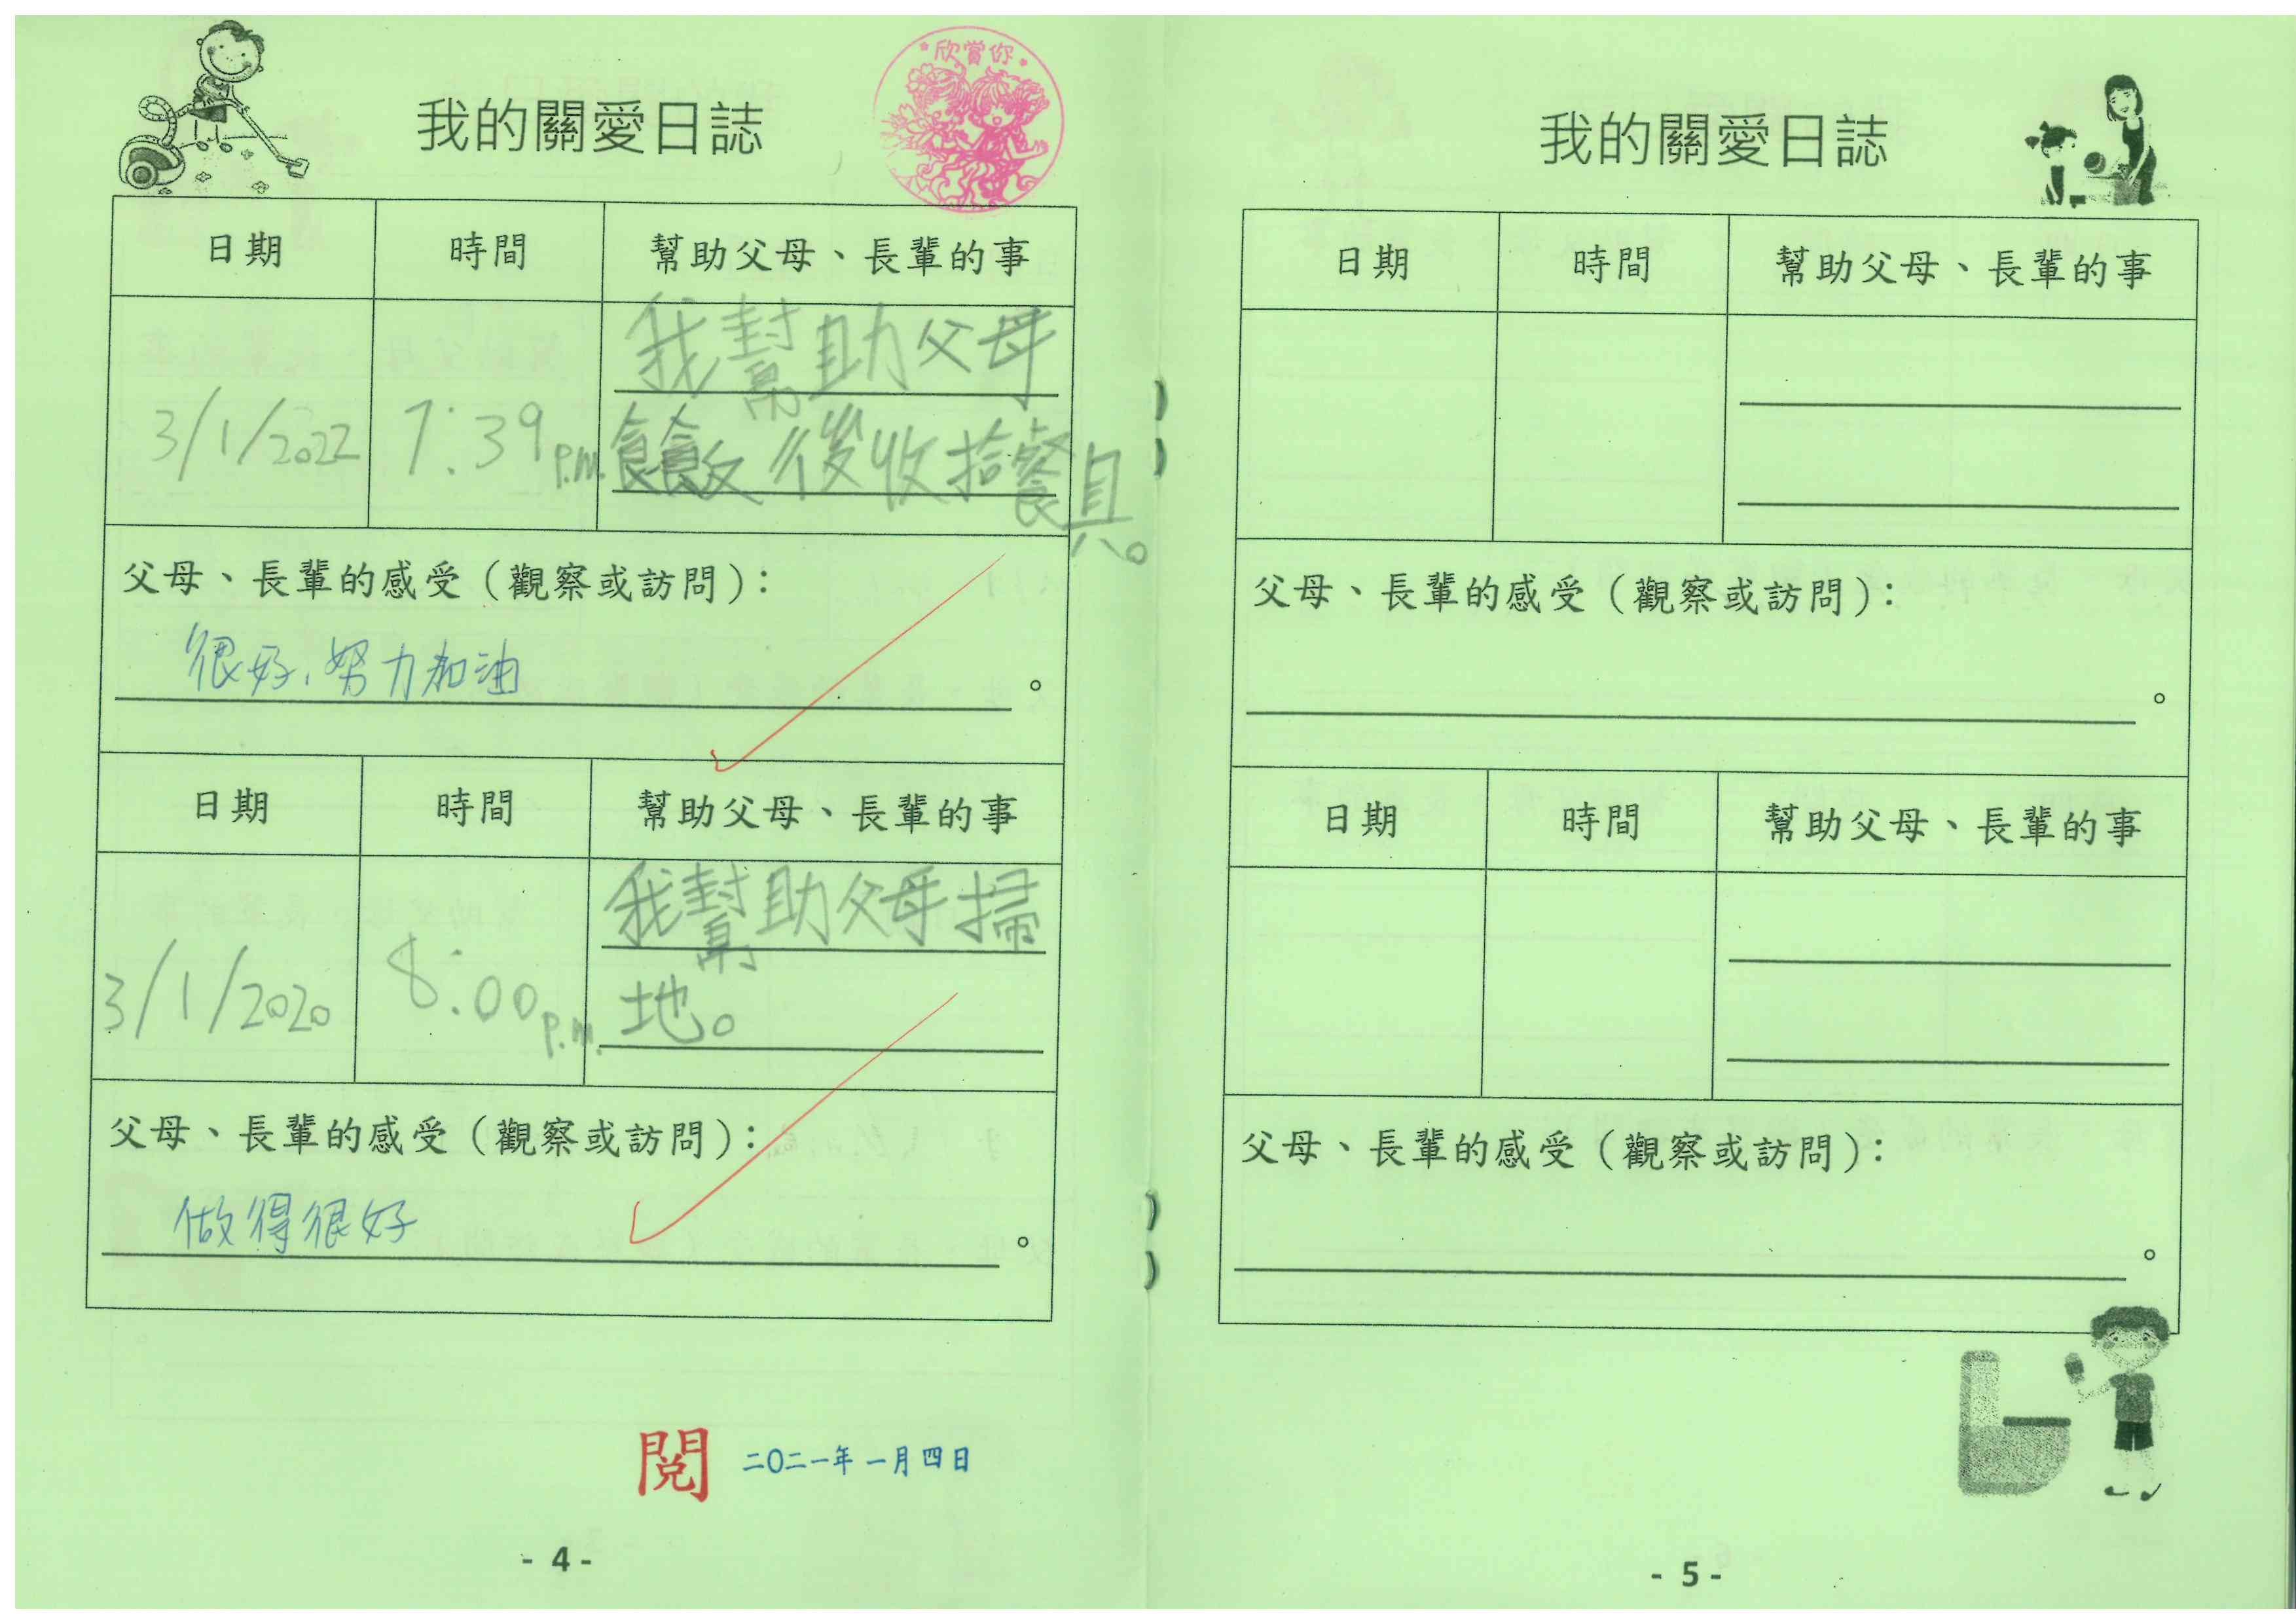 我的關愛日誌
欣賞你
日期 時間 幫助父母、長輩的事
3/1/2022 7:39 p.m. 我幫助父母
飯後收拾餐具。
父母、長輩的感受(觀察或訪問):
很好,努力加油。
日期 時間 幫助父母、長輩的事
3/1/2020 8:00 p.m. 我幫助父母掃
地。
父母、長輩的感受(觀察或訪問):
做得很好。
閱 二〇二一年一月四日
- 4 -
我的關愛日誌
日期 時間 幫助父母、長輩的事
父母、長輩的感受(觀察或訪問):
。
日期 時間 幫助父母、長輩的事
父母、長輩的感受(觀察或訪問):
。
- 5 -